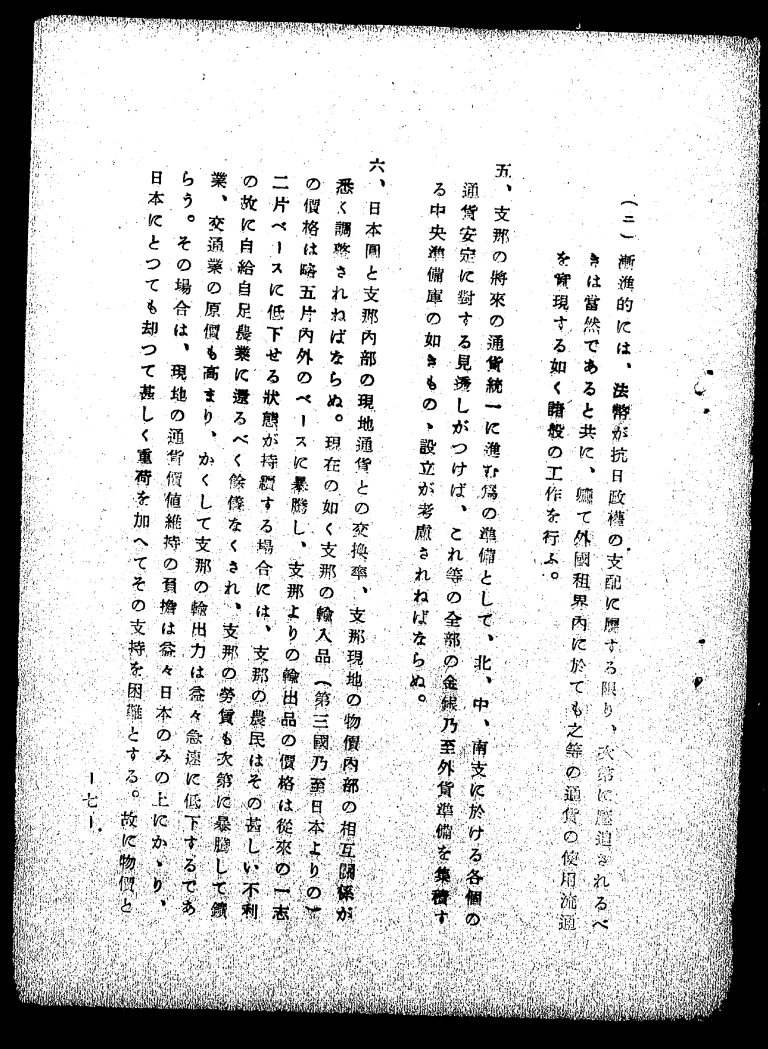 (二)漸進的には、法幣が抗日政權の支配に屬する限り、次第に壓迫されるべ
きは當然であると共に、軈て外國租界內に於ても之等の通貨の使用流通
を實現する如く諸般の工作を行ふ。
五、支那の將來の通貨統一に進む爲の準備として、北、中、南支に於ける各個の
通貨安定に對する見透しがつけば、これ等の全部の金銀乃至外貨準備を集積す
る中央準備庫の如きもの、設立が考慮されねばならぬ。
六、日本圓と支那內部の現地通貨との交換率、支那現地の物價內部の相互關係が
悉く調整されねばならぬ。現在の如く支那の輸入品(第三國乃至日本よりの)
の價格は略五片內外のベースに暴騰し、支那よりの輸出品の價格は從來の一志
二片ベースに低下せる狀態が持續する場合には、支那の農民はその甚しい不利
の故に自給自足農業に還るべく餘儀なくされ、支那の勞賃も次第に暴騰して鑛
業、交通業の原價も高まり、かくして支那の輸出力は益々急速に低下するであ
らう。その場合は、現地の通貨價値維持の負擔は益々日本のみの上にかゝり、
日本にとつても却つて甚しく重荷を加へてその支持を困難とする。故に物價と
ー七ー